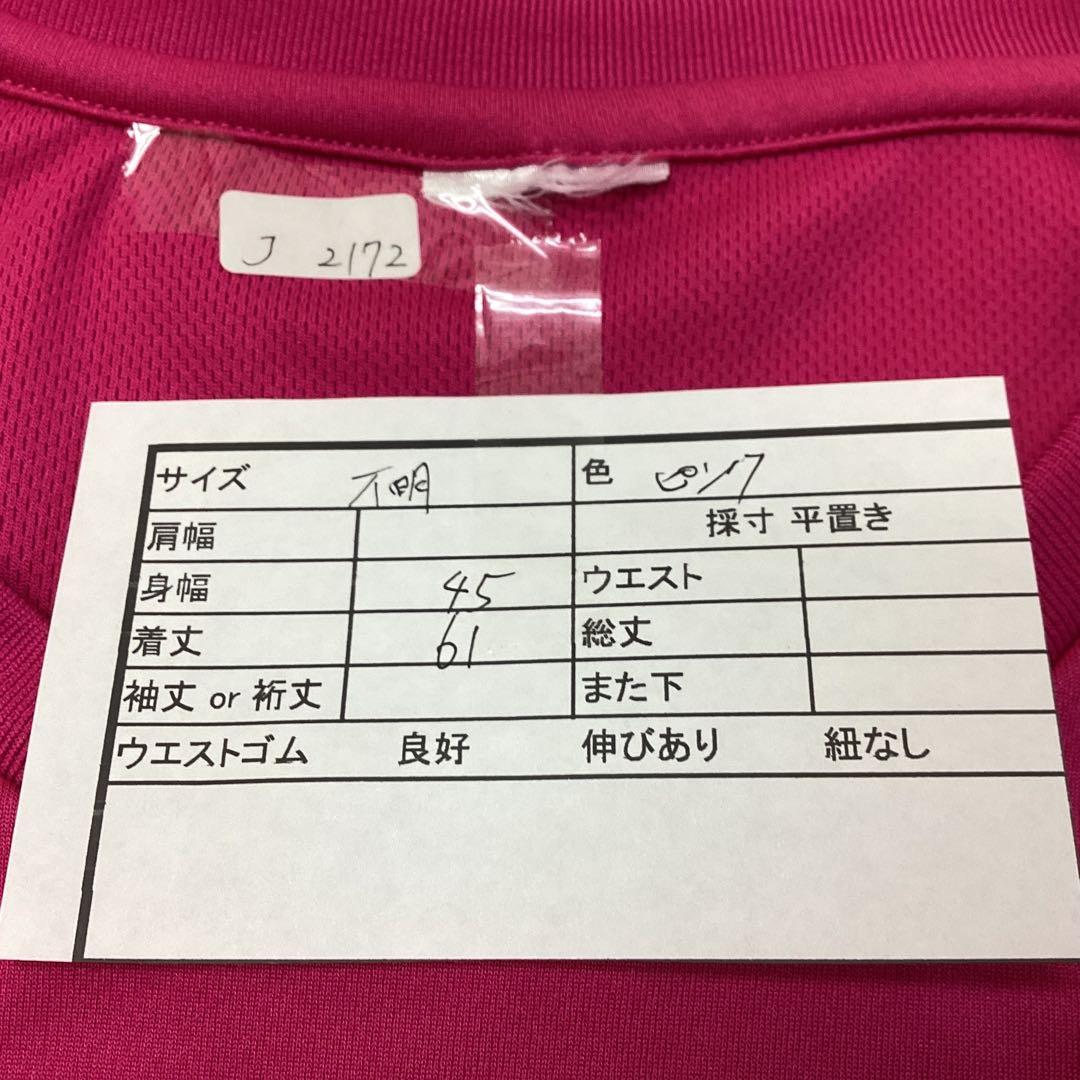 J 2172
サイズ 不明 色 ピンク
肩幅 採寸 平置き
身幅 45 ウエスト
着丈 61 総丈
袖丈 or 裄丈 また下
ウエストゴム 良好 伸びあり 紐なし